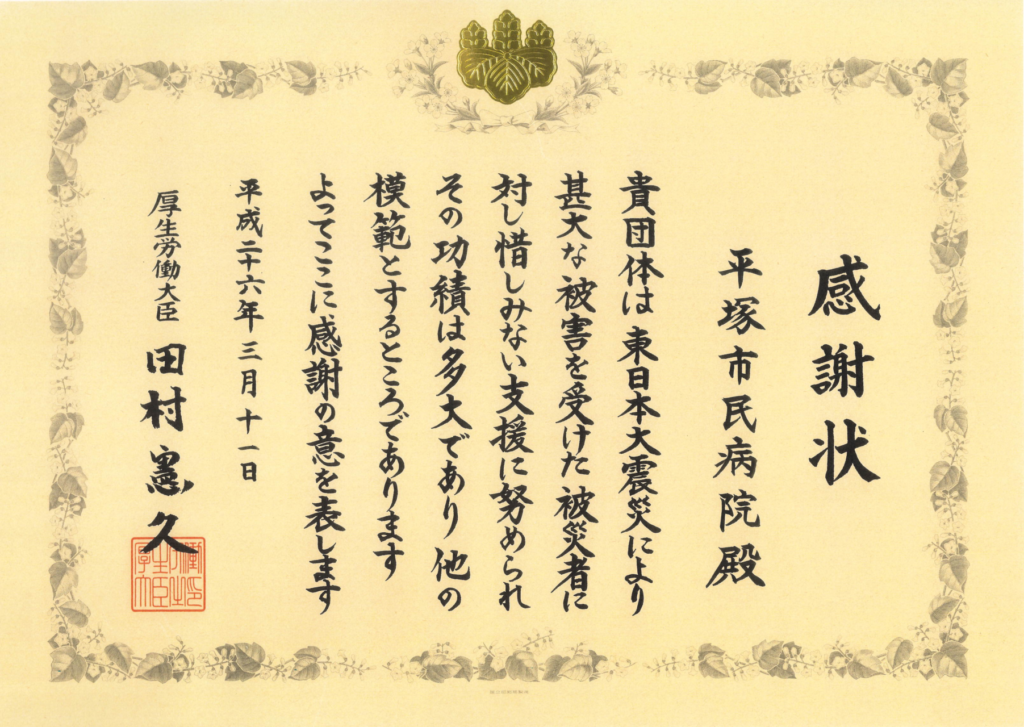 感謝状
平塚市民病院殿
貴団体は東日本大震災により
甚大な被害を受けた被災者に
対し惜しみない支援に努められ
その功績は多大であり他の
模範とするところであります
よってここに感謝の意を表します
平成二十六年三月十一日
厚生労働大臣 田村憲久